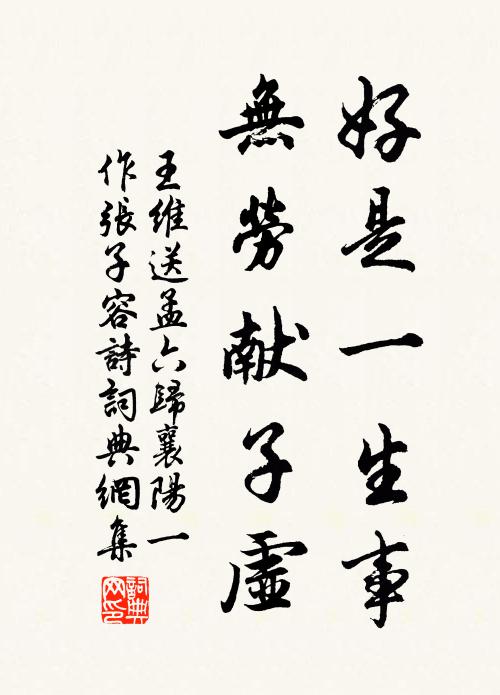 好是一生事
無勞献子虛
王維送孟六歸襄陽一
作張子容詩詞典網集
詞典
网印